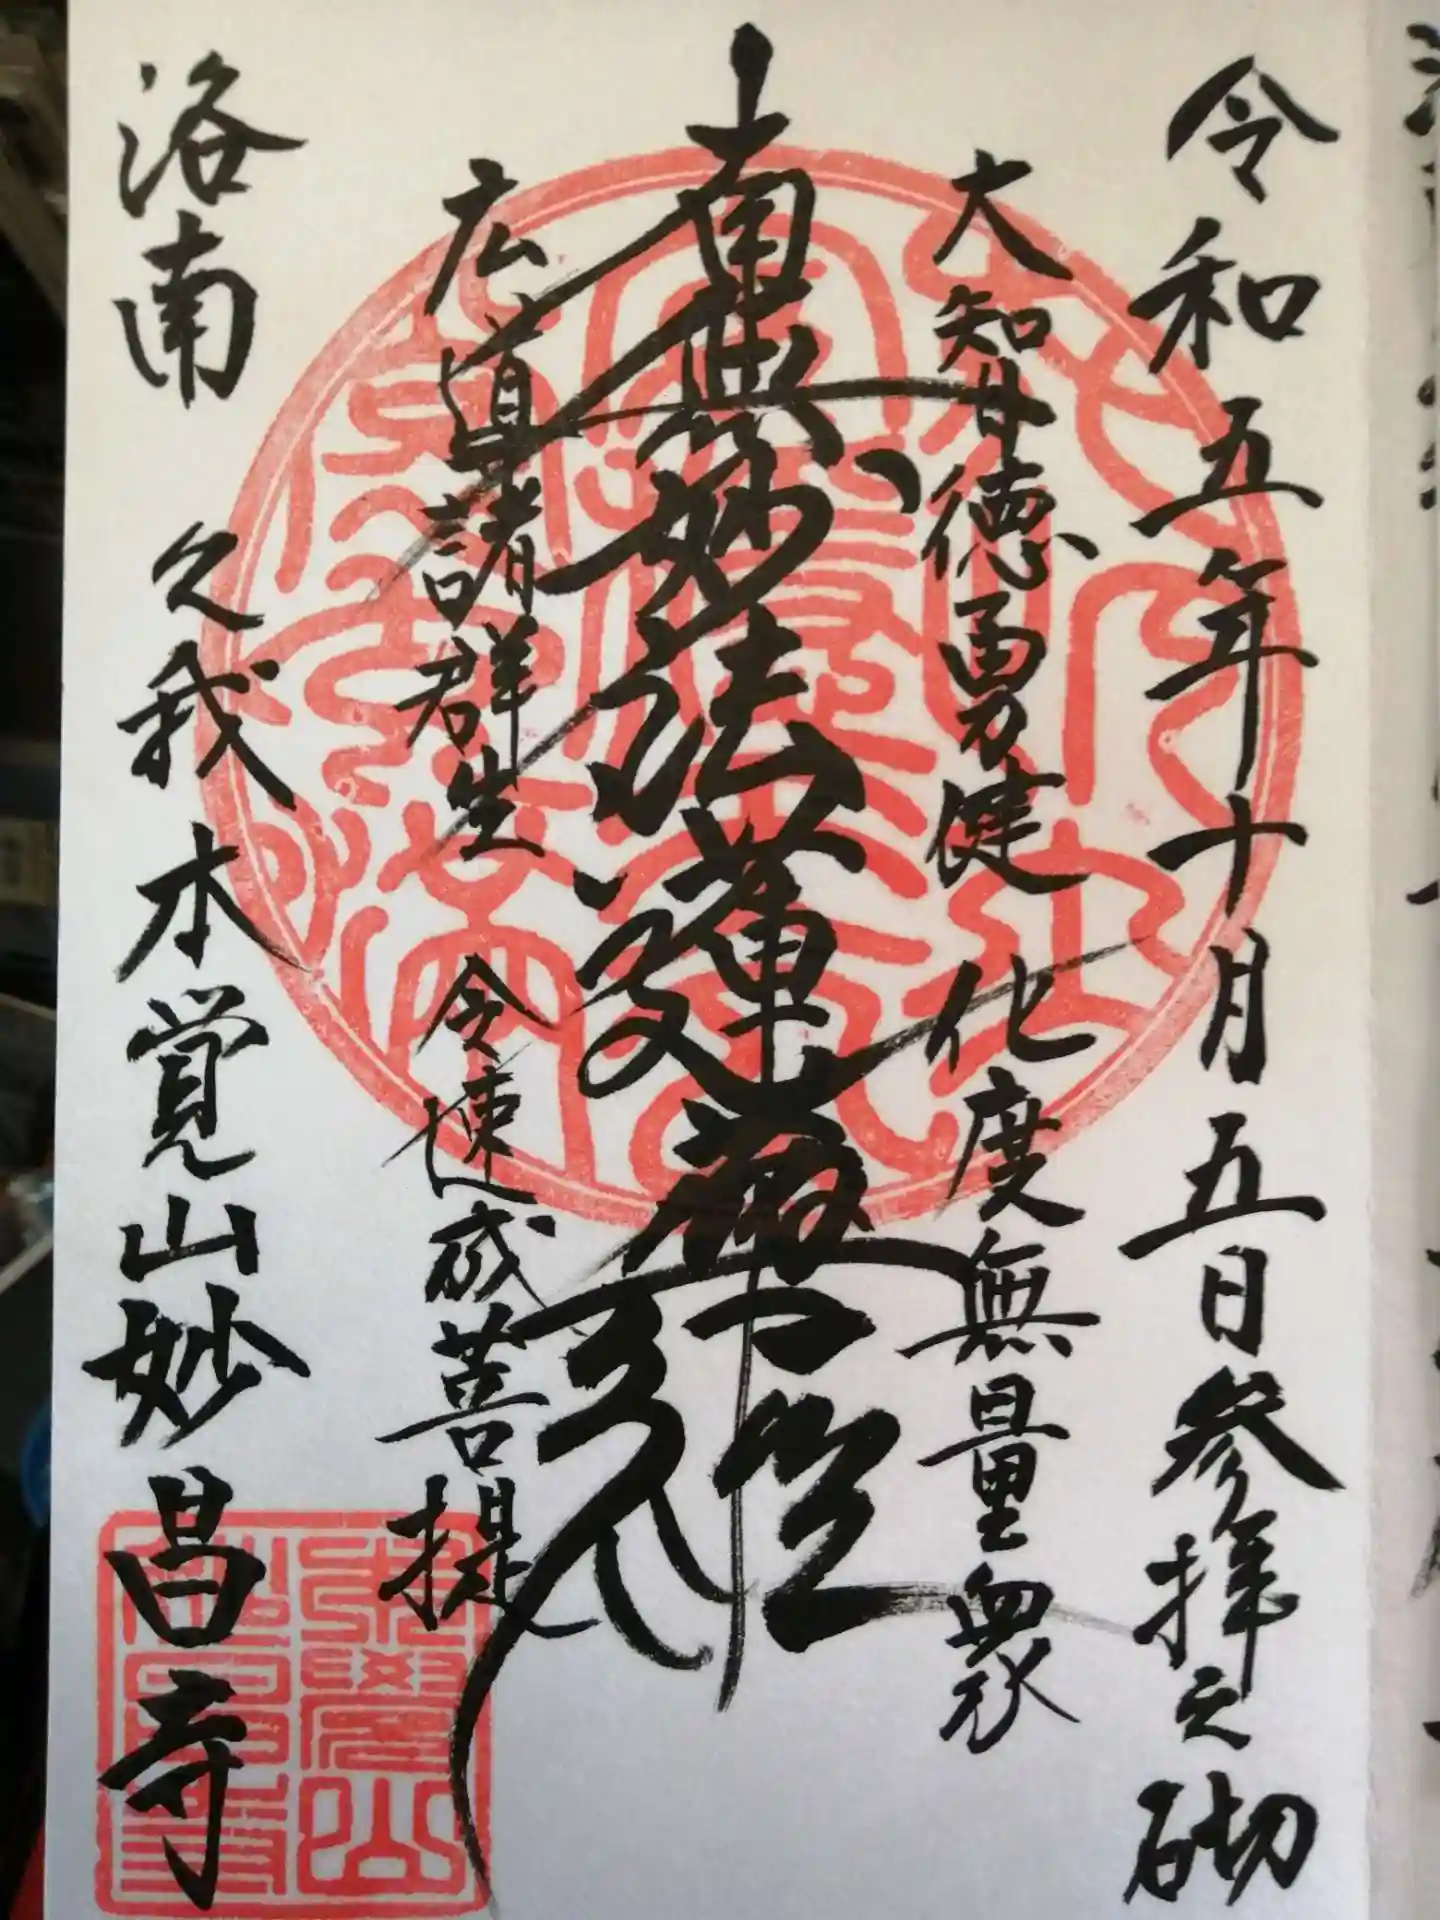 令和五年十月五日参拝之砌
大智徳勇健 化度無量衆
南無妙法蓮華経
広導諸群生 令速成菩提
洛南 久我 本覚山妙昌寺
本覺山
妙昌寺